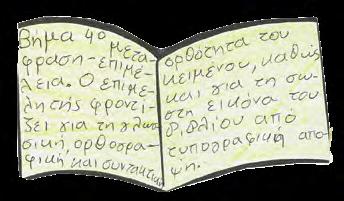 Βήμα 4ο μετά-
φραση-επιμέ-
λεια. Ο επιμε-
λητής φροντί-
ζει για τη γλωσ-
σική, ορθογρα-
φική και συντακτική
ορθότητα του
κειμένου, καθώς
και για τη σω-
στη εικόνα του
βιβλίου από
τυπογραφική απο-
ψη.